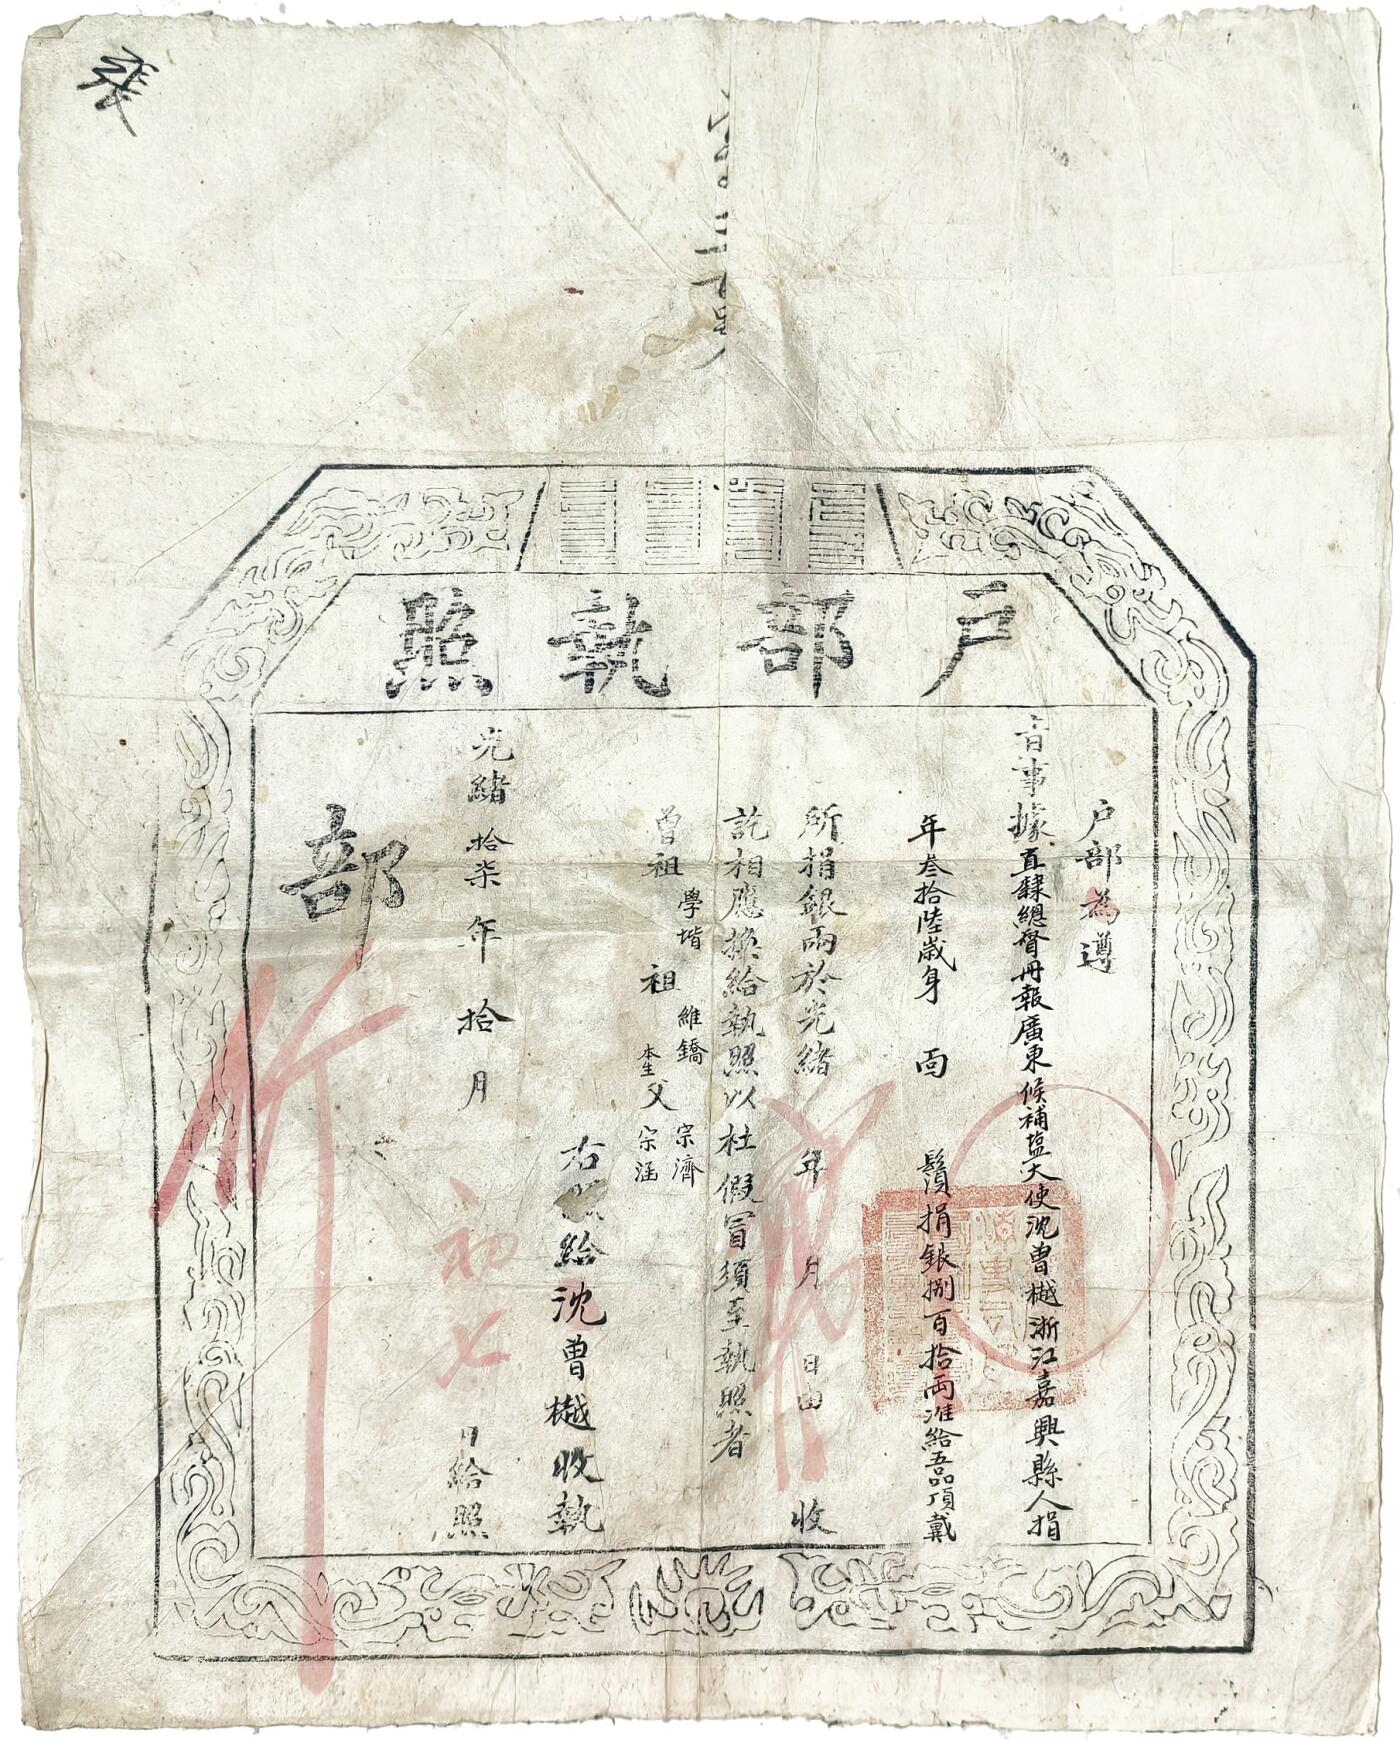 戶部執照
户部為遵
旨事據直隸總督冊報廣東候補塩大使沈曽樾浙江嘉興縣人捐
年叁拾陸歲身 面 鬚湏捐銀捌百拾両准給五品頂戴
所捐銀兩於光緒 年 月 日由 收
訖相應換給執照以杜假冒須至執照者
曾祖學堦 祖維鐈 本生父宗濟 宗涵
右 給沈曽樾收執
光緒拾柒年拾月初七日給照
部
行